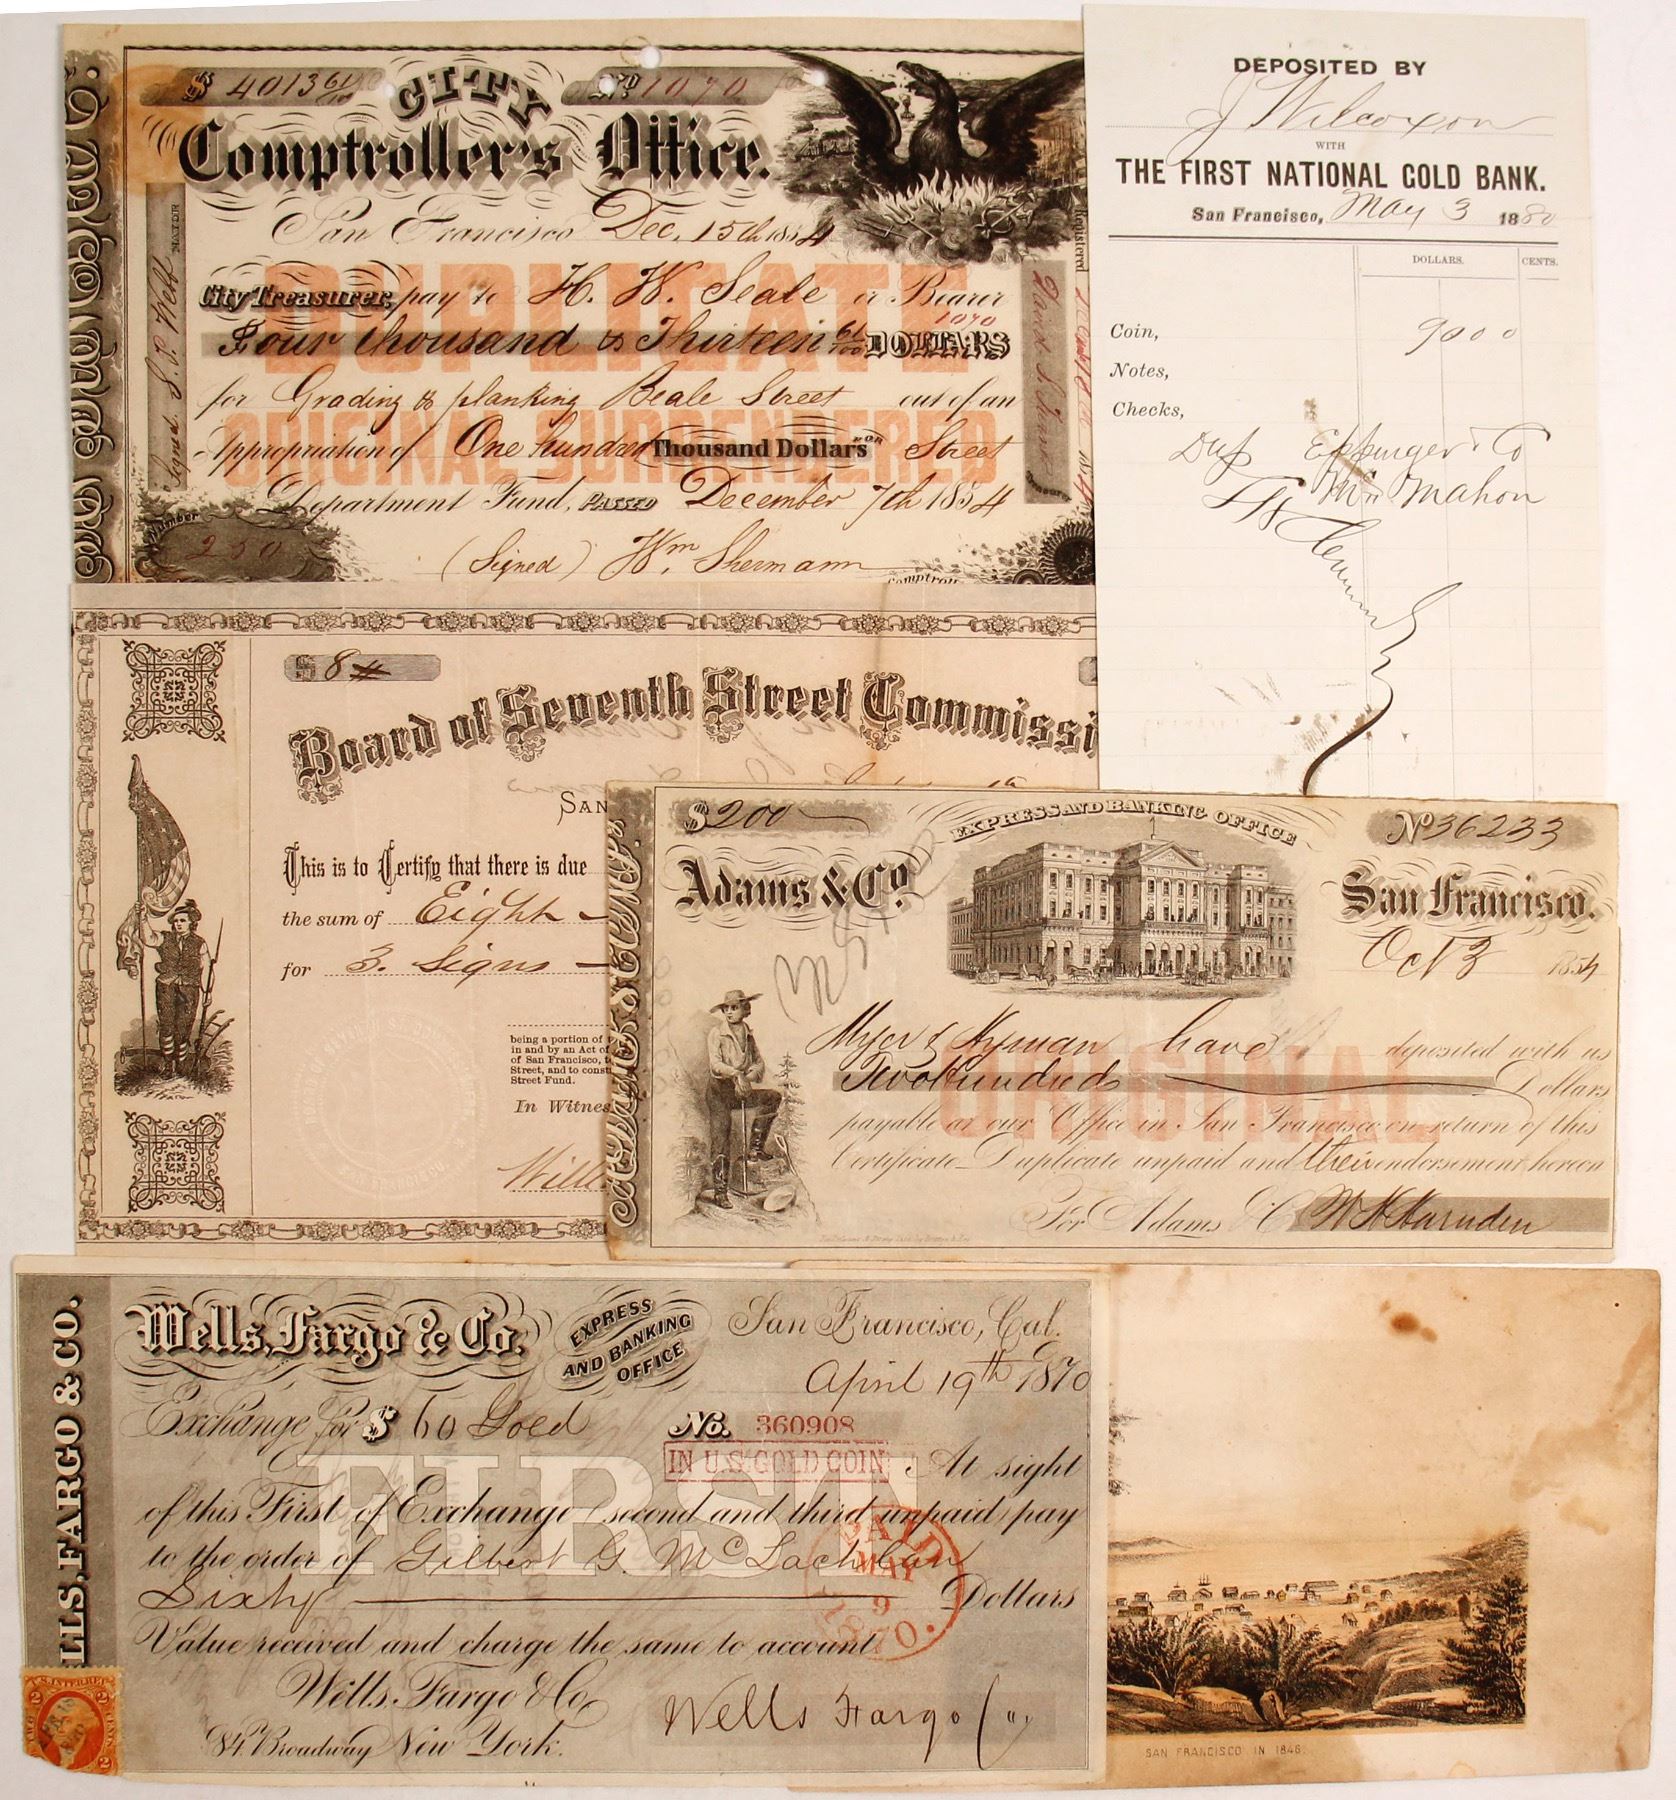 $ 4013 61/100
No 1070
CITY
Comptroller's Office.
San Francisco Dec. 15th 1854
DUPLICATE
City Treasurer, pay to H. W. Seale or Bearer
1070
Four thousand & Thirteen 61/100 DOLLARS
for Grading & planking Beale Street out of an
ORIGINAL SURRENDERED
Appropriation of One hundred Thousand Dollars FOR Street
Department Fund, PASSED December 7th 1854
Number
250
(Signed) Wm Shermann
Signed. S. P. Welt
Registered
DEPOSITED BY
J Wilcoxon
WITH
THE FIRST NATIONAL GOLD BANK.
San Francisco, May 3 1880
DOLLARS. CENTS.
Coin, 9000
Notes,
Checks,
Dup Eppinger & Co
$ 8
Board of Seventh Street Commissi
SAN
This is to Certify that there is due
the sum of Eight
for 3. Signs
being a portion of
in and by an Act of
of San Francisco, t
Street, and to const
Street Fund.
In Witnes
$ 200
EXPRESS AND BANKING OFFICE
No 36233
Adams & Co.
San Francisco.
Oct 3 1854
Myer & Hyman have deposited with us
Two Hundred Dollars
ORIGINAL
payable at our Office in San Francisco on return of this
Certificate Duplicate unpaid and their endorsement hereon
For Adams & Co W H Harnden
WELLS, FARGO & CO.
Wells, Fargo & Co.
EXPRESS
AND BANKING
OFFICE
San Francisco, Cal.
April 19th 1870
Exchange for $ 60 Gold
No. 360908
IN U.S. GOLD COIN At sight
FIRST
of this First of Exchange (second and third unpaid) pay
to the order of Gilbert G. McLachlan
Sixty Dollars
PAID
MAY
9
1870.
Value received and charge the same to account
Wells, Fargo & Co.
84, Broadway New York.
Wells Fargo Co
U.S. INTER. REV.
2 2
SAN FRANCISCO IN 1846.